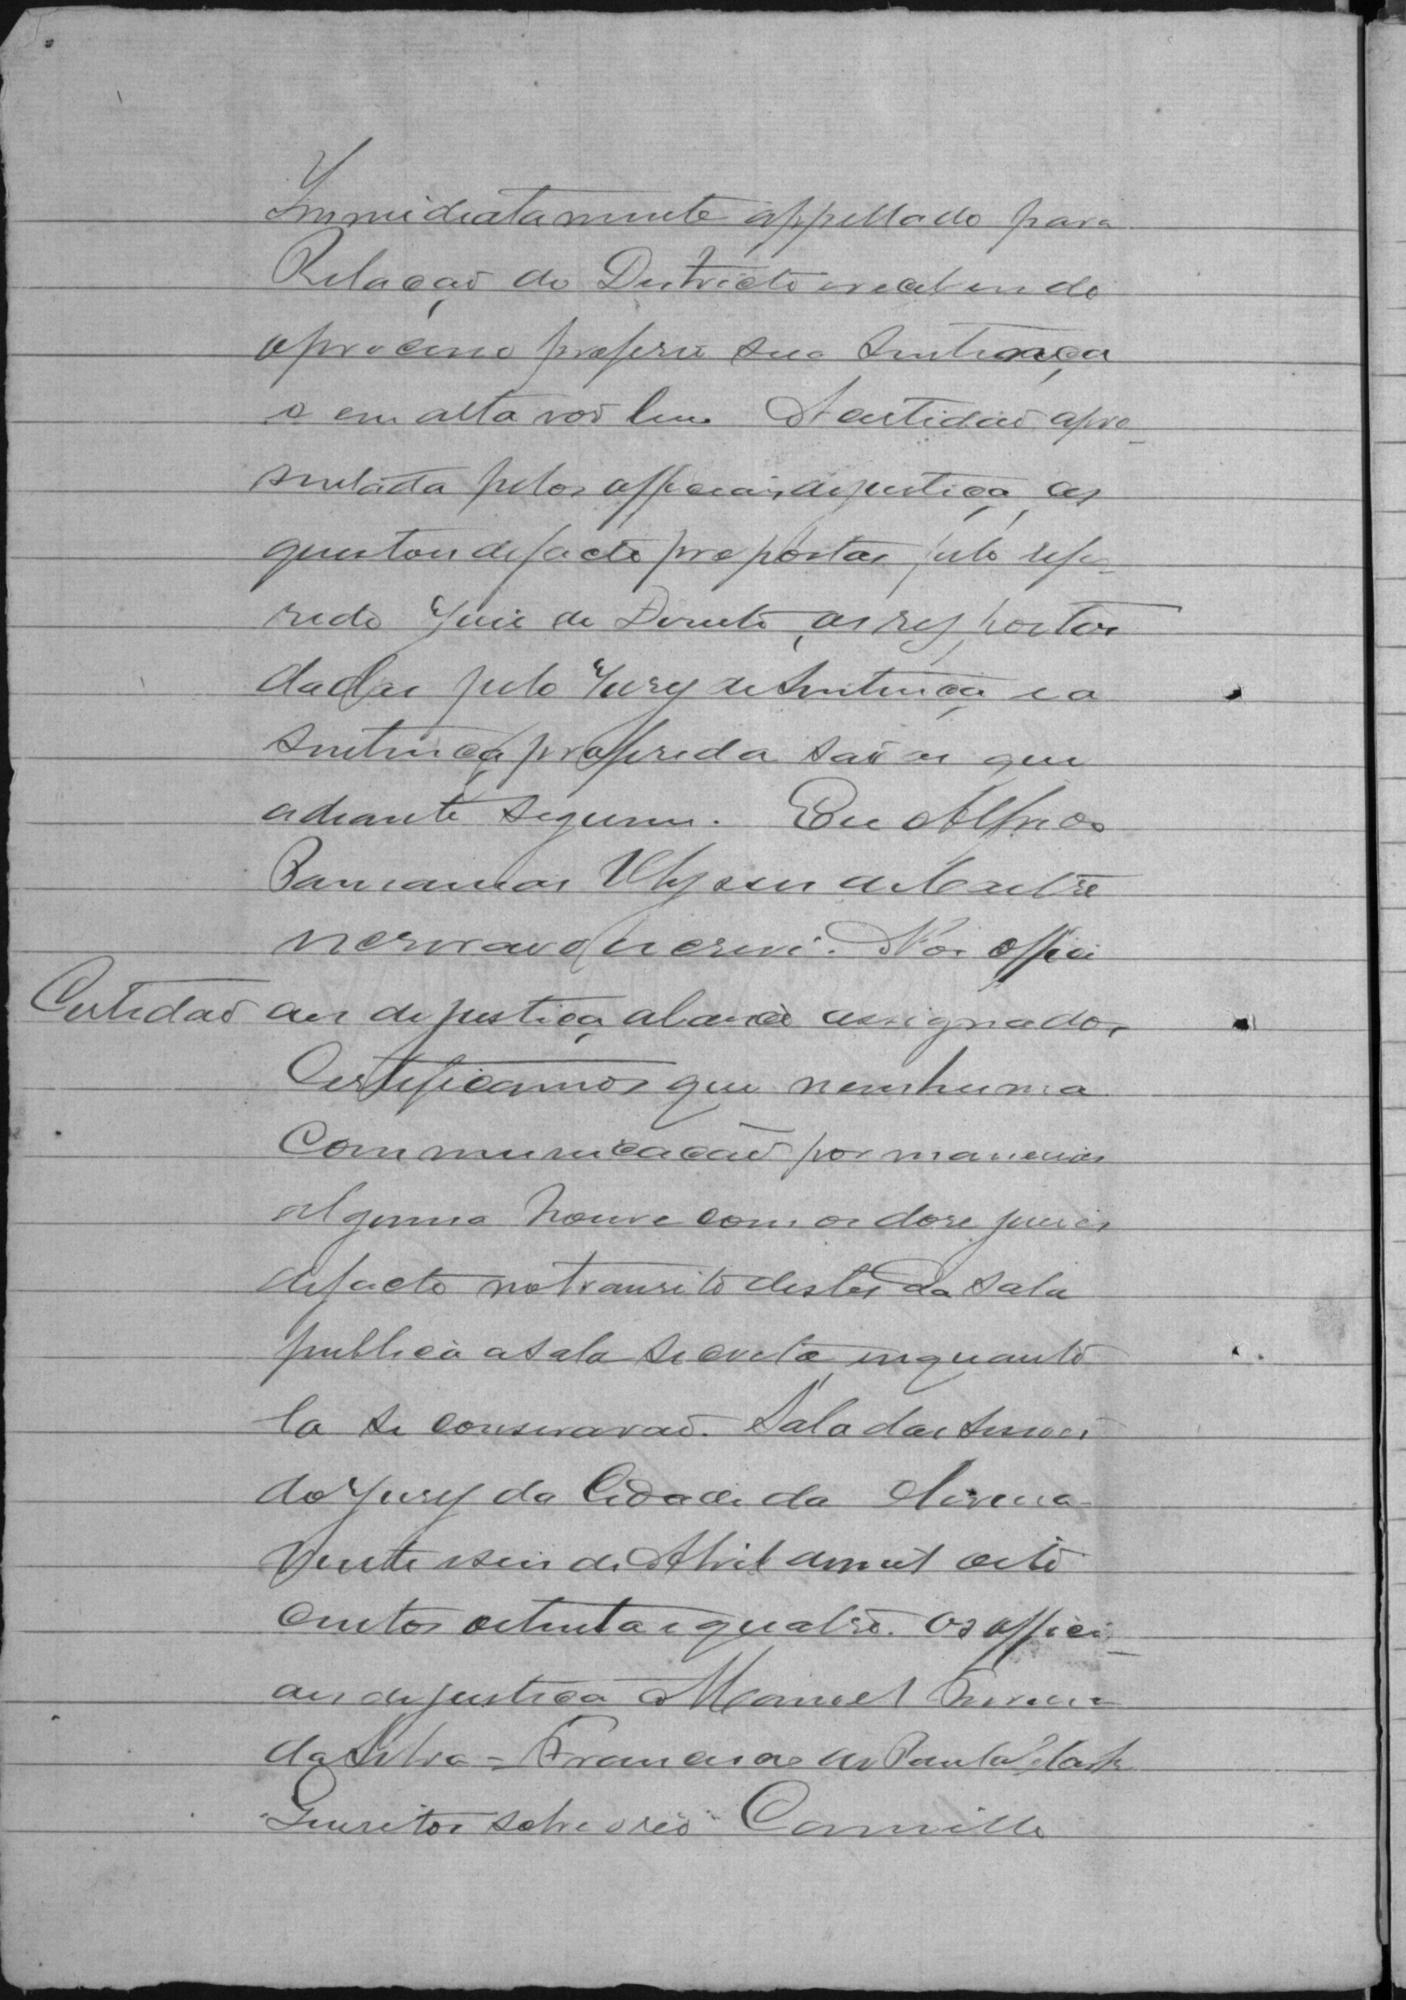 Immediatamente appellado para
Relação do Districto e recebendo
o processo proferio sua Sentença
e em alta vos leu. A certidão apre-
sentada pelos officiais de justiça, as
questões de facto propostas pelo refe-
rido Juis de Direito, as respostas
dadas pelo Jury de Sentença e a
sentença proferida são as que
adiante seguem. Eu Alfredo
Ulysses de Castro
escrivão q escrevi. Nos offici
Certidão aes de justiça abaixo assignados
Certificamos que nenhuma
Communicacão por maneira
alguma houve com os dose juises
de facto no transito destes da sala
publica a sala secreta, enquanto
la se conservarão. Sala das Sessões
do Jury da Cidade da
vinte e seis de Abril de mil oito
centos oitenta e quatro. Os offici-
aes de justiça Manoel
da Silva = Francisco de Paula
Quesitos sobre o reo Camillo